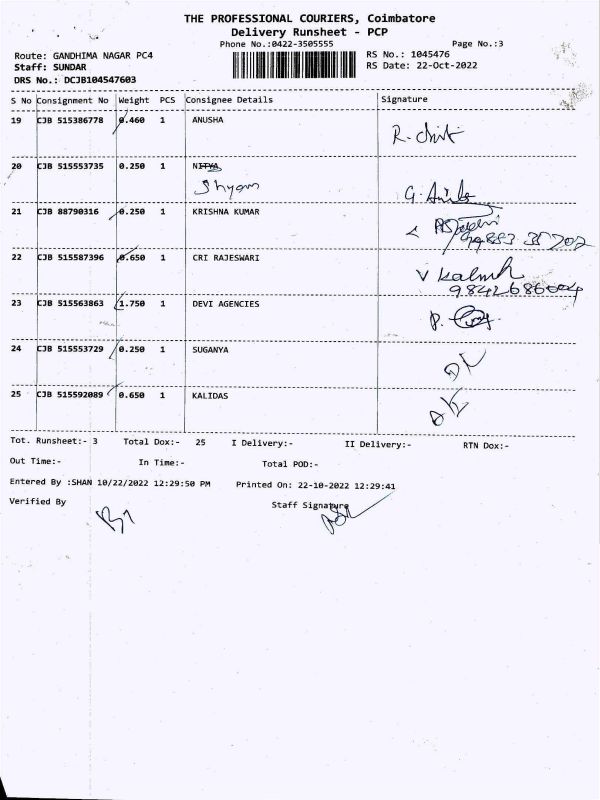 THE PROFESSIONAL COURIERS, Coimbatore
Delivery Runsheet - PCP
Phone No.:0422-3505555 Page No.:3
Route: GANDHIMA NAGAR PC4 RS No.: 1045476
Staff: SUNDAR RS Date: 22-Oct-2022
DRS No.: DCJB104547603
S No Consignment No Weight PCS Consignee Details Signature
19 CJB 515386778 0.460 1 ANUSHA
20 CJB 515553735 0.250 1 NITYA
Shyam
21 CJB 88790316 0.250 1 KRISHNA KUMAR
22 CJB 515587396 0.650 1 CRI RAJESWARI
9842686604
23 CJB 515563863 1.750 1 DEVI AGENCIES
24 CJB 515553729 0.250 1 SUGANYA
25 CJB 515592089 0.650 1 KALIDAS
Tot. Runsheet:- 3 Total Dox:- 25 I Delivery:- II Delivery:- RTN Dox:-
Out Time:- In Time:- Total POD:-
Entered By :SHAN 10/22/2022 12:29:50 PM Printed On: 22-10-2022 12:29:41
Verified By Staff Signature